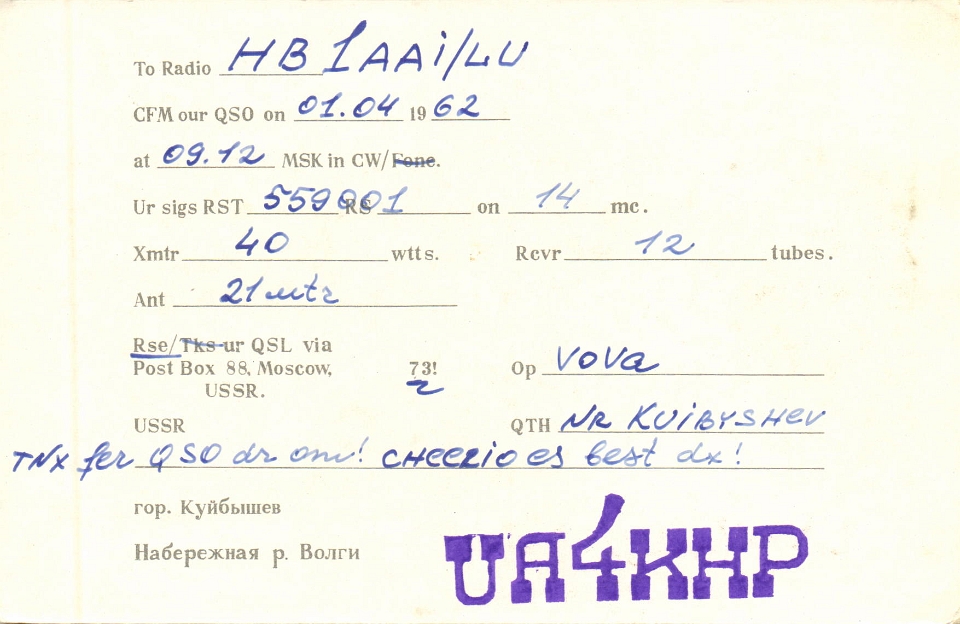 To Radio HB1AAi/LU
CFM our QSO on 01.04 1962
at 09.12 MSK in CW/Fone.
Ur sigs RST 559001 RS on 14 mc.
Xmtr 40 wtts. Rcvr 12 tubes.
Ant 21 mtr
Rse/Tks ur QSL via
Post Box 88, Moscow, 73! Op VOVA
USSR.
USSR QTH NR KUiBYSHEV
TNX fer QSO dr om! CHEERIO es best dx!
гор. Куйбышев
Набережная р. Волги
UA4KHP